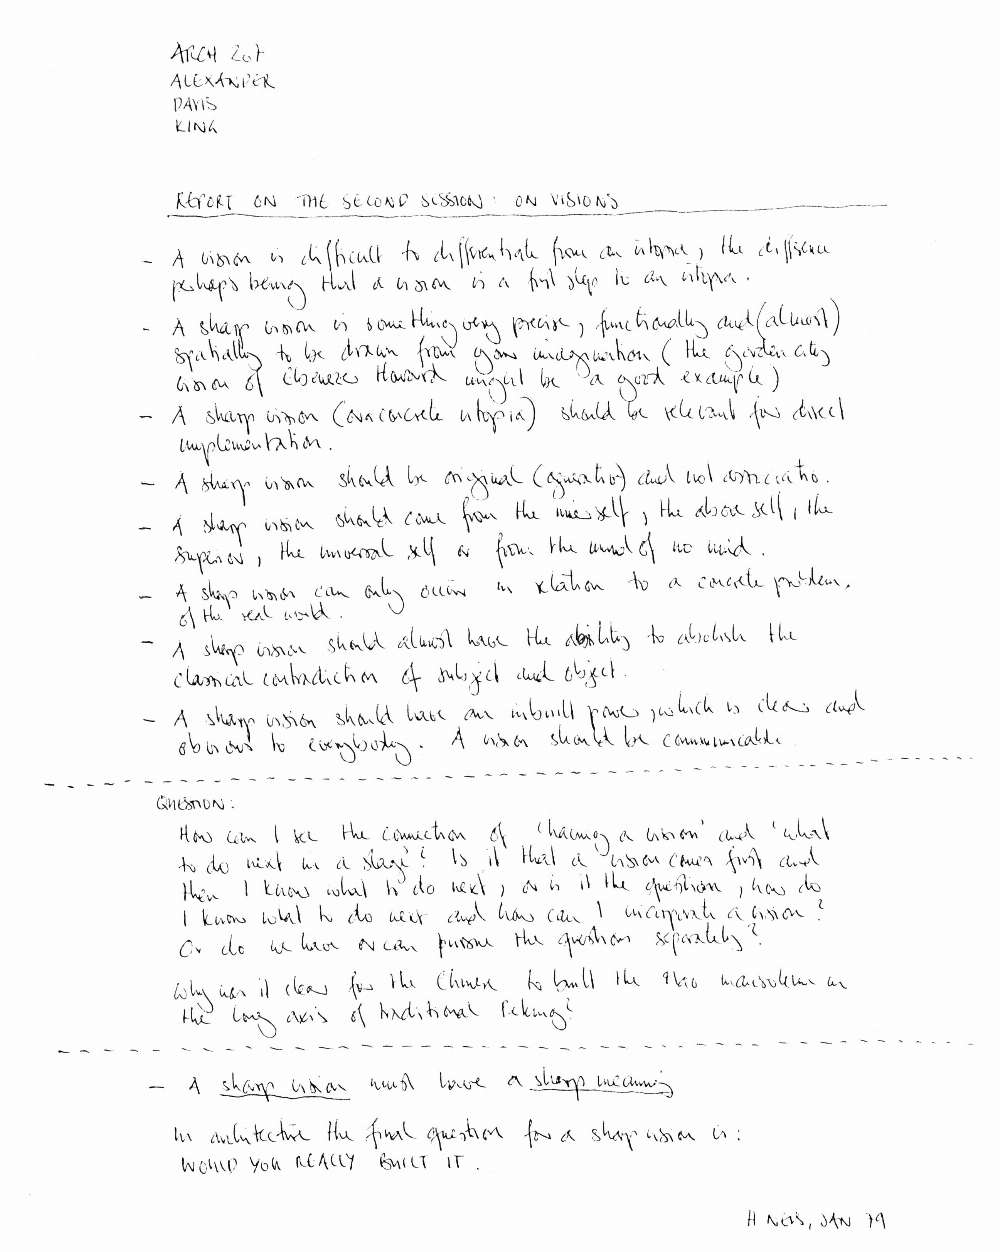 ARCH 207
ALEXANDER
DAVIS
KING
REPORT ON THE SECOND SESSION: ON VISIONS
- A vision is difficult to differentiate from an utopia, the difference
perhaps being that a vision is a first step to an utopia.
- A sharp vision is something very precise, functionally and (almost)
spatially to be drawn from your imagination (the garden city
vision of Ebenezer Howard might be a good example)
- A sharp vision (or a concrete utopia) should be relevant for direct
implementation.
- A sharp vision should be original (generativ) and not associativ.
- A sharp vision should come from the innerself, the above self, the
superior, the universal self or from the mind of no mind.
- A sharp vision can only occur in relation to a concrete problem.
of the real world.
- A sharp vision should almost have the ability to abolish the
classical contradiction of subject and object.
- A sharp vision should have an inbuilt power, which is clear and
obvious to everybody. A vision should be communicable
QUESTION:
How can I see the connection of 'having a vision' and 'what
to do next in a stage'? Is it that a vision comes first and
then I know what to do next, or is it the question, how do
I know what to do next and how can I incorporate a vision?
Or do we have or can pursue the questions separately?
Why was it clear for the Chinese to built the Mao mausoleum in
the long axis of traditional Peking?
- A sharp vision must have a sharp meaning
In architecture the final question for a sharp vision is:
WOULD YOU REALLY BUILT IT.
H NEIS, JAN 79